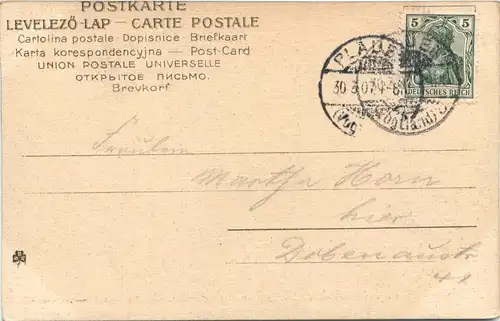 POSTKARTE
LEVELEZŐ-LAP — CARTE POSTALE
Cartolina postale - Dopisnice Briefkaart
Karta korespondencyjna — Post-Card
UNION POSTALE UNIVERSELLE
ОТКРЫТОЕ ПИСЬМО.
Brevkort
5 5
DEUTSCHES REICH
PLAUEN
30 3 07
(Vogtland)
Fräulein
Martha Horn
hier
Dobenaustr
41